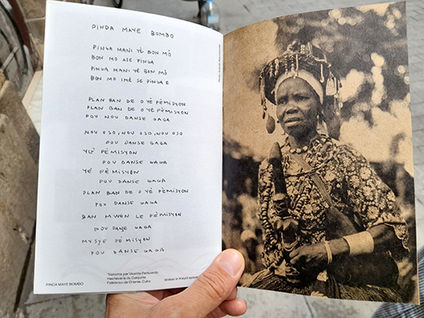 PINDA MAYE BOMBO
PINGA MANI YÉ BON MÓ
BON MO ASE PINGA
PINGA MANI YÉ BON MÓ
BON MO ASE PINGA
PLAN BAN DE O YÉ PÈMISYON
PLAN BAN DE O YÉ PÈMISYON
POU NOU DANSE GAGA
NOU OSO, NOU OSO, NOU OSO
POU DANSE GAGA
YÉ PÈMISYON
POU DANSE GAGA
YÉ PÈMISYON
POU DANSE GAGA
PLAN BAN DE O YÉ PÈMISYON
POU DANSE GAGA
BAN MWEN LE PÈMISYON
POU DANSE GAGA
MYSYE PÈMISYON
POU DANSE GAGA
PINDA MAYE BOMBO